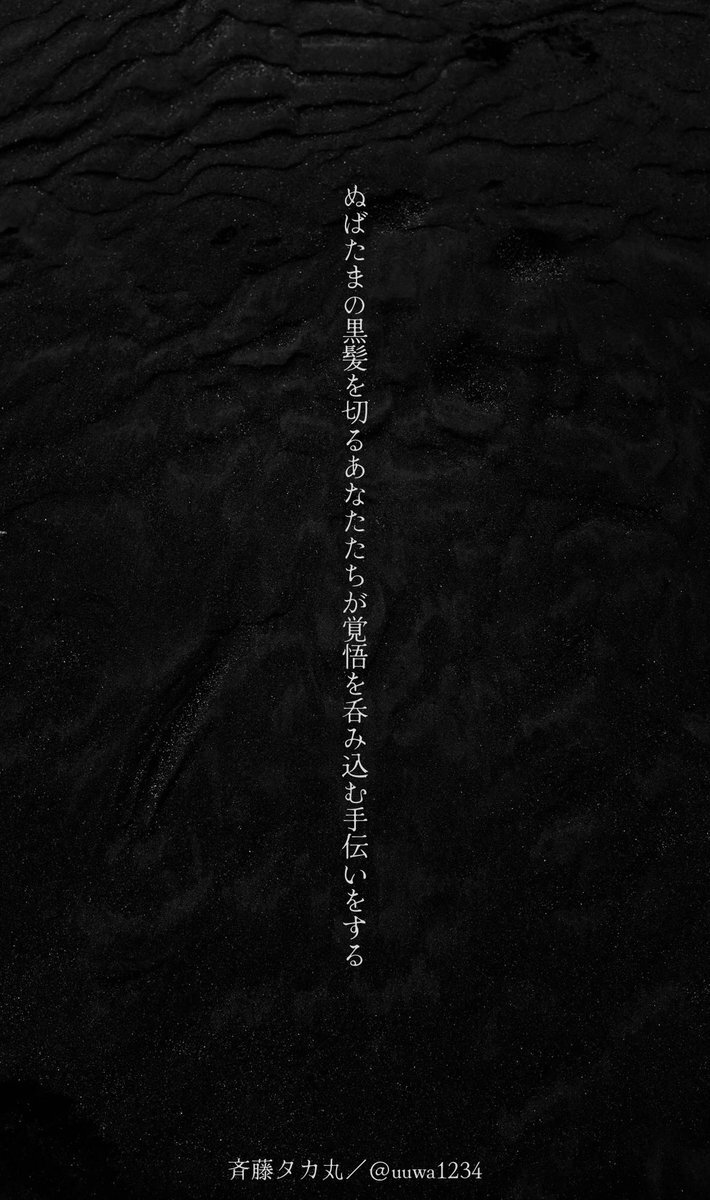 ぬばたまの黒髪を切るあなたたちが覚悟を呑み込む手伝いをする
斉藤タカ丸／@uuwa1234